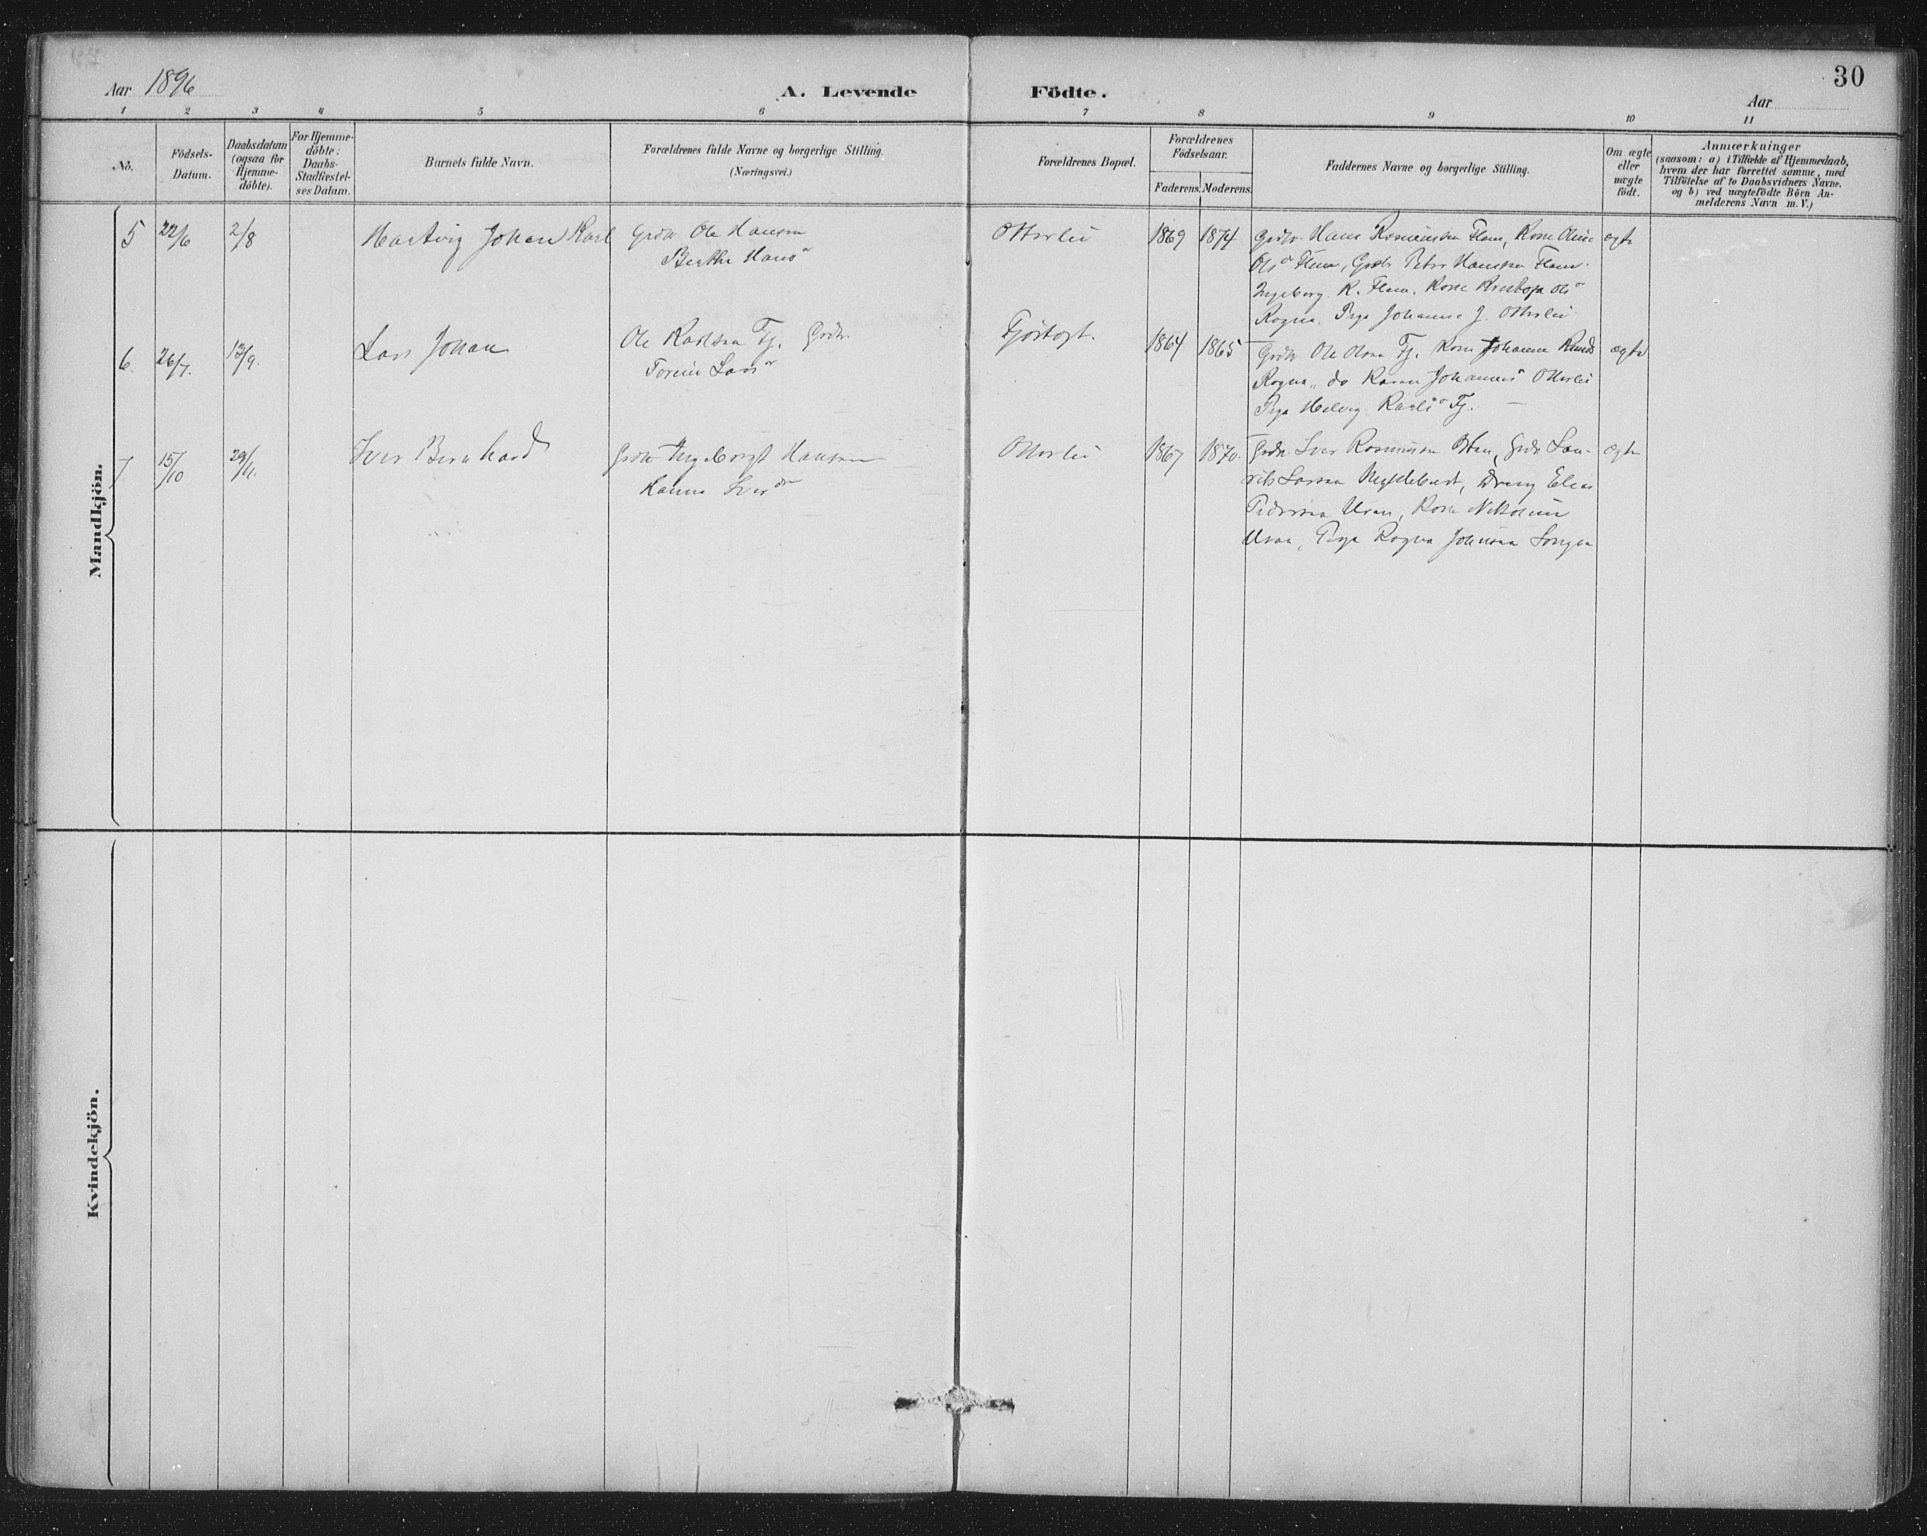 30
Aar 1896
A. Levende Födte.
Aar
1 2 3 4 5 6 7 8 9 10 11
No.
Födsels-
Datum.
Daabsdatum
(ogsaa for
Hjemme-
döbte).
For Hjemme-
döbte:
Daabs-
Stadfæstel-
ses Datum.
Barnets fulde Navn.
Forældrenes fulde Navne og borgerlige Stilling.
(Næringsvei.)
Forældrenes Bopæl.
Forældrenes
Födselsaar.
Faderens. Moderens.
Faddernes Navne og borgerlige Stilling.
Om ægte
eller
uægte
födt.
Anmærkninger
(saasom: a) i Tilfælde af Hjemmedaab,
hvem der har forrettet samme, med
Tilföielse af to Daabsvidners Navne.
og b) ved uægtefödte Börn An-
melderens Navn m. V.)
Mandkjön.
5 22/6 2/8 Hartvig Johan Karl Grdbr Ole Hansen
Berthe Hans
Otterlei 1869 1874 Hans Rasmussen Flem, Kone Oline ægte
Ols Flem, Grdbr Peter Hansen Flem.
Ingeborg K. Flem. Kone
Rogne. Pige Johanne J. Otterlei
6. 26/7. 13/9. Lars Johan Ole Karlsen Fj. Grdbr.
Lars
Fjørtoft. 1864 1865 Grdbr Ole Olsen Fj. Kone Johanne Knuds ægte
Rogne, do Karen Johannes Otterlei
Pige Helvig Karls Fj. —
7 15/10 29/11. Iver Bernhard Grdbr Ingebrigt Hansen
Hanna Iver
Otterlei 1867 1870. Grdbr. Iver Rasmussen Grdbr Lau- ægte
rits Larsen Dreng Elias
Pedersen Uran, Kone Nikoline
Uran, Pige Ragna Johnsen
Kvindekjön.